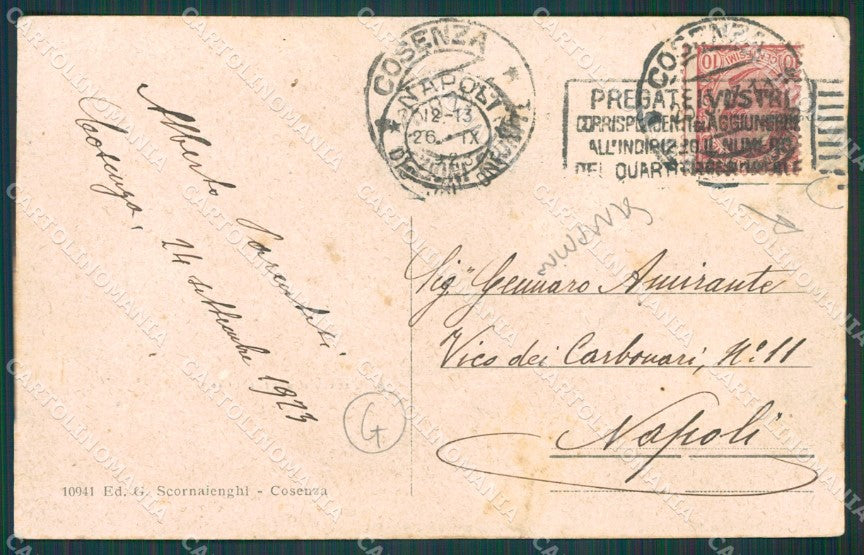 Alberto
Cosenza, 24 settembre 1923
COSENZA
COSENZA
NAPOLI
12-13
26. IX
PREGATE I VOSTRI
CORRISPONDENTI DI AGGIUNGERE
ALL'INDIRIZZO IL NUMERO
DEL QUARTIERE POSTALE
Sig. Gennaro Amirante
Vico dei Carbonari, N.º 11
Napoli
G
10941 Ed. G. Scornaienghi - Cosenza
CARTOLINOMANIA